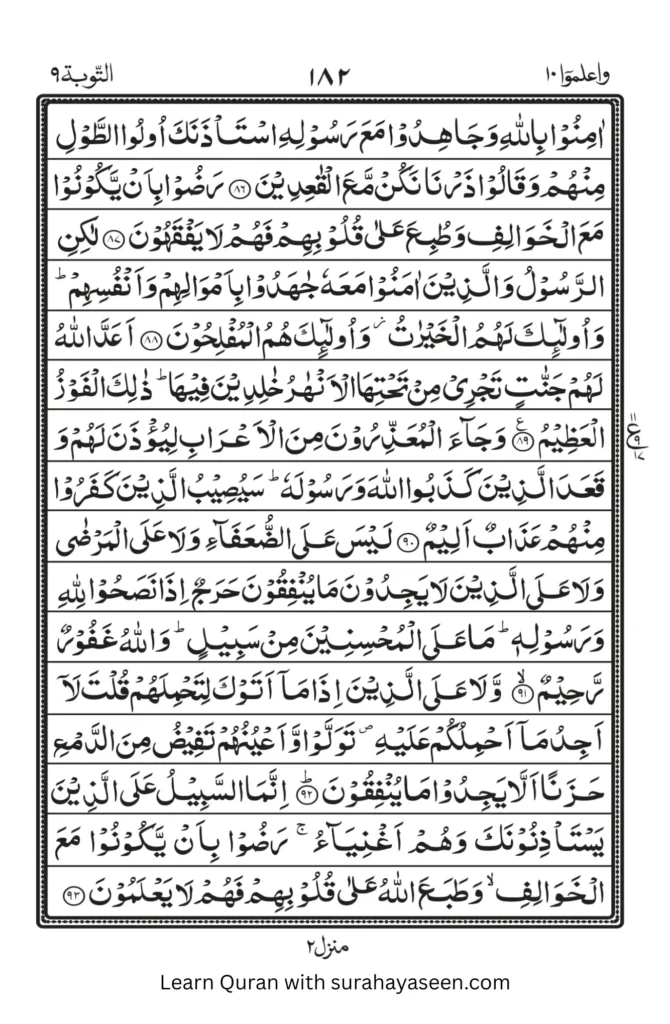 واعلموٓا ١٠
١٨٢
التّوبة ٩
اٰمِنُوْا بِاللّٰهِ وَجَاهِدُوْا مَعَ رَسُوْلِهِ اسْتَاْذَنَكَ اُولُوا الطَّوْلِ
مِنْهُمْ وَقَالُوْا ذَرْنَا نَكُنْ مَّعَ الْقٰعِدِيْنَ ۝٨٦ رَضُوْا بِاَنْ يَّكُوْنُوْا
مَعَ الْخَوَالِفِ وَطُبِعَ عَلٰى قُلُوْبِهِمْ فَهُمْ لَا يَفْقَهُوْنَ ۝٨٧ لٰكِنِ
الرَّسُوْلُ وَالَّذِيْنَ اٰمَنُوْا مَعَهٗ جٰهَدُوْا بِاَمْوَالِهِمْ وَاَنْفُسِهِمْ ؕ
وَاُولٰٓئِكَ لَهُمُ الْخَيْرٰتُ ز وَاُولٰٓئِكَ هُمُ الْمُفْلِحُوْنَ ۝٨٨ اَعَدَّ اللّٰهُ
لَهُمْ جَنّٰتٍ تَجْرِيْ مِنْ تَحْتِهَا الْاَنْهٰرُ خٰلِدِيْنَ فِيْهَا ؕ ذٰلِكَ الْفَوْزُ
الْعَظِيْمُ ۝٨٩ ع وَجَآءَ الْمُعَذِّرُوْنَ مِنَ الْاَعْرَابِ لِيُؤْذَنَ لَهُمْ وَ
قَعَدَ الَّذِيْنَ كَذَبُوا اللّٰهَ وَرَسُوْلَهٗ ؕ سَيُصِيْبُ الَّذِيْنَ كَفَرُوْا
مِنْهُمْ عَذَابٌ اَلِيْمٌ ۝٩٠ لَيْسَ عَلَى الضُّعَفَآءِ وَلَا عَلَى الْمَرْضٰى
وَلَا عَلَى الَّذِيْنَ لَا يَجِدُوْنَ مَا يُنْفِقُوْنَ حَرَجٌ اِذَا نَصَحُوْا لِلّٰهِ
وَرَسُوْلِهٖ ؕ مَا عَلَى الْمُحْسِنِيْنَ مِنْ سَبِيْلٍ ؕ وَاللّٰهُ غَفُوْرٌ
رَّحِيْمٌ ۝٩١ ۙ وَّلَا عَلَى الَّذِيْنَ اِذَا مَآ اَتَوْكَ لِتَحْمِلَهُمْ قُلْتَ لَآ
اَجِدُ مَآ اَحْمِلُكُمْ عَلَيْهِ ص تَوَلَّوْا وَّاَعْيُنُهُمْ تَفِيْضُ مِنَ الدَّمْعِ
حَزَنًا اَلَّا يَجِدُوْا مَا يُنْفِقُوْنَ ۝٩٢ ؕ اِنَّمَا السَّبِيْلُ عَلَى الَّذِيْنَ
يَسْتَاْذِنُوْنَكَ وَهُمْ اَغْنِيَآءُ ۚ رَضُوْا بِاَنْ يَّكُوْنُوْا مَعَ
الْخَوَالِفِ ۙ وَطَبَعَ اللّٰهُ عَلٰى قُلُوْبِهِمْ فَهُمْ لَا يَعْلَمُوْنَ ۝٩٣
منزل ٢
Learn Quran with surahayaseen.com